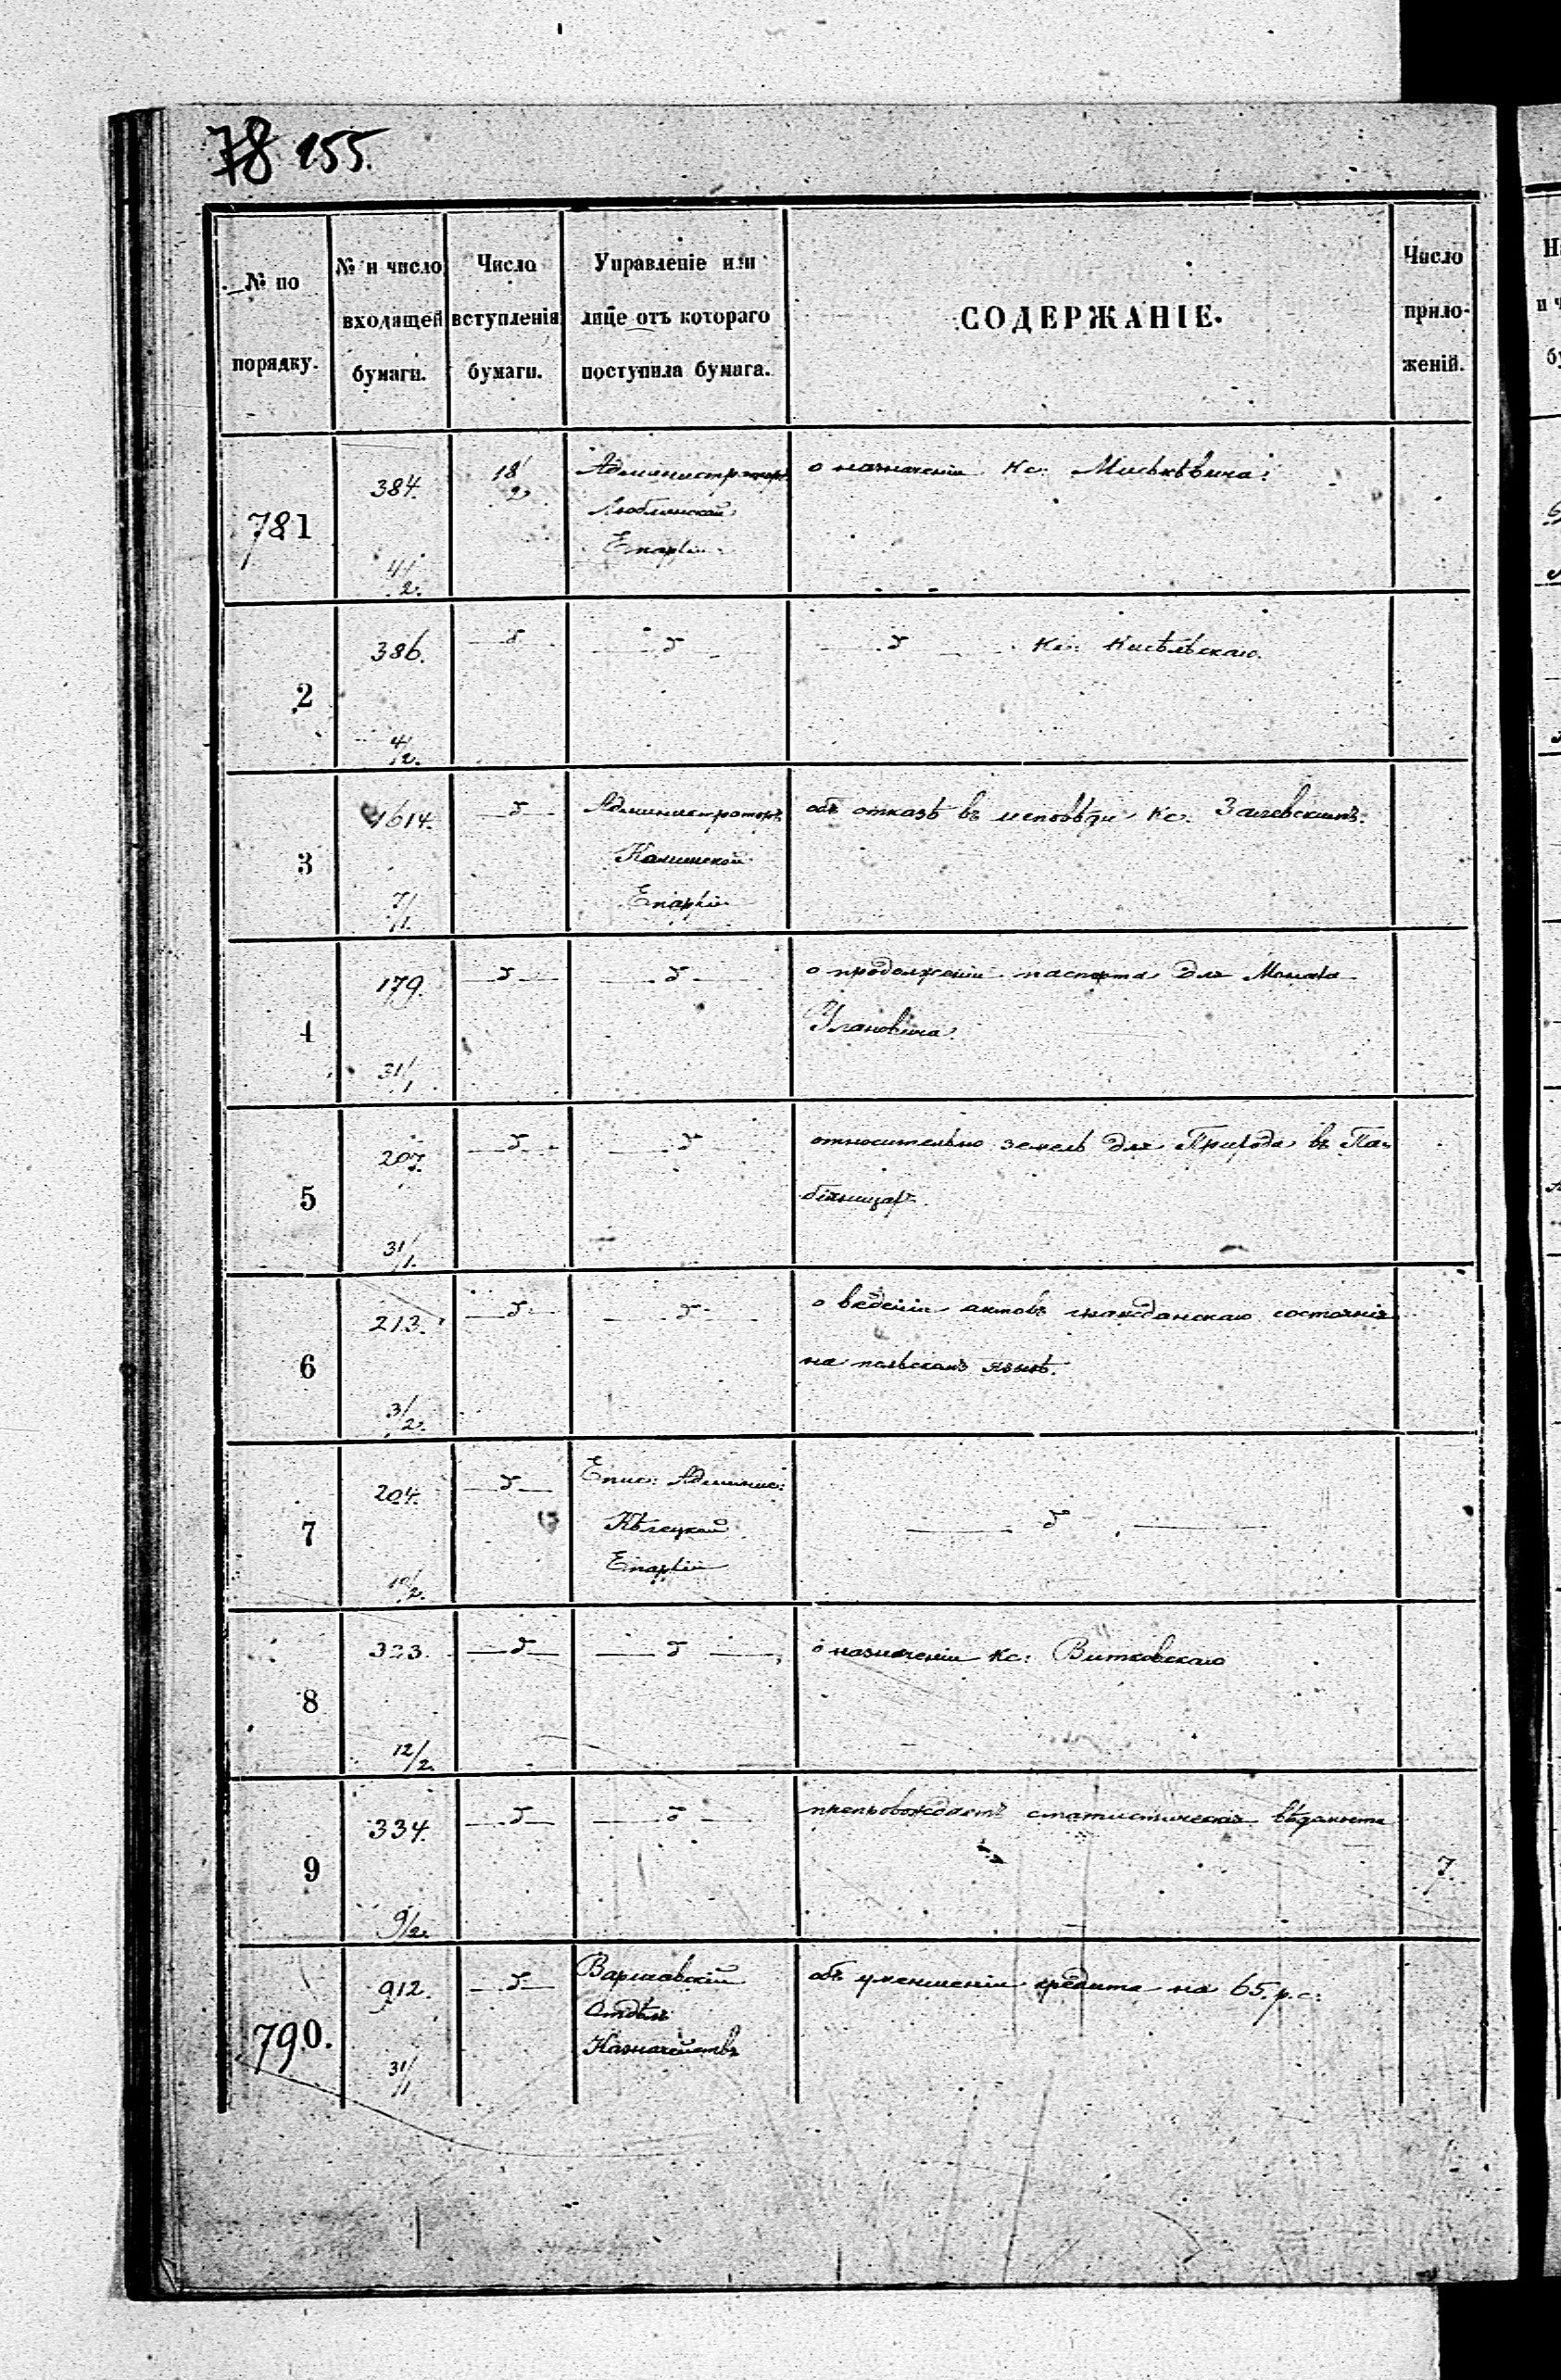 78 155.
№ по порядку.
№ и число входящей бумаги.
Число вступленія бумаги.
Управленіе или лице отъ котораго поступила бумага.
СОДЕРЖАНІЕ.
Число приложеній.
781
384.
4/2.
18/2
Администраторъ
Люблинской
Епархіи
о назначеніи Кс: Миськѣвича.
2
386.
4/2.
— δ —
— δ —
— δ — Кс: Кисѣлевскаго.
3
1614.
7/1.
— δ —
Администраторъ
Калишской
Епархіи
объ отказѣ въ исповѣди Кс.
4
179.
31/1
— δ —
— δ —
о продолженіи паспорта для Монаха
Улановича.
5
207.
31/1.
— δ —
— δ —
относительно земель для Прихода въ Па-
біяницахъ.
6
213.
3/2.
— δ —
— δ —
о веденіи актовъ гражданскаго состоянія
на польскомъ языкѣ.
7
204.
10/2.
— δ —
Епис: Админис:
Кѣлецкой
Епархіи
— δ —
8
323.
12/2.
— δ —
— δ —
о назначеніи Кс: Витковскаго
9
334.
9/2.
— δ —
— δ —
препровождаетъ статистическія вѣдомости
7.
790.
912.
31/1
— δ —
Варшавскій
Отдѣлъ
Казначействъ
объ уменшеніи кредита на 65. р. с.